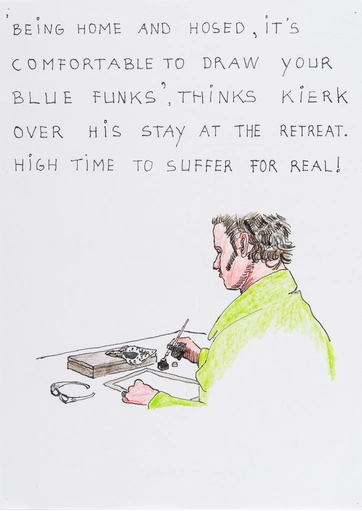 'BEING HOME AND HOSED, IT'S
COMFORTABLE TO DRAW YOUR
BLUE FUNKS', THINKS KIERK
OVER HIS STAY AT THE RETREAT.
HIGH TIME TO SUFFER FOR REAL!